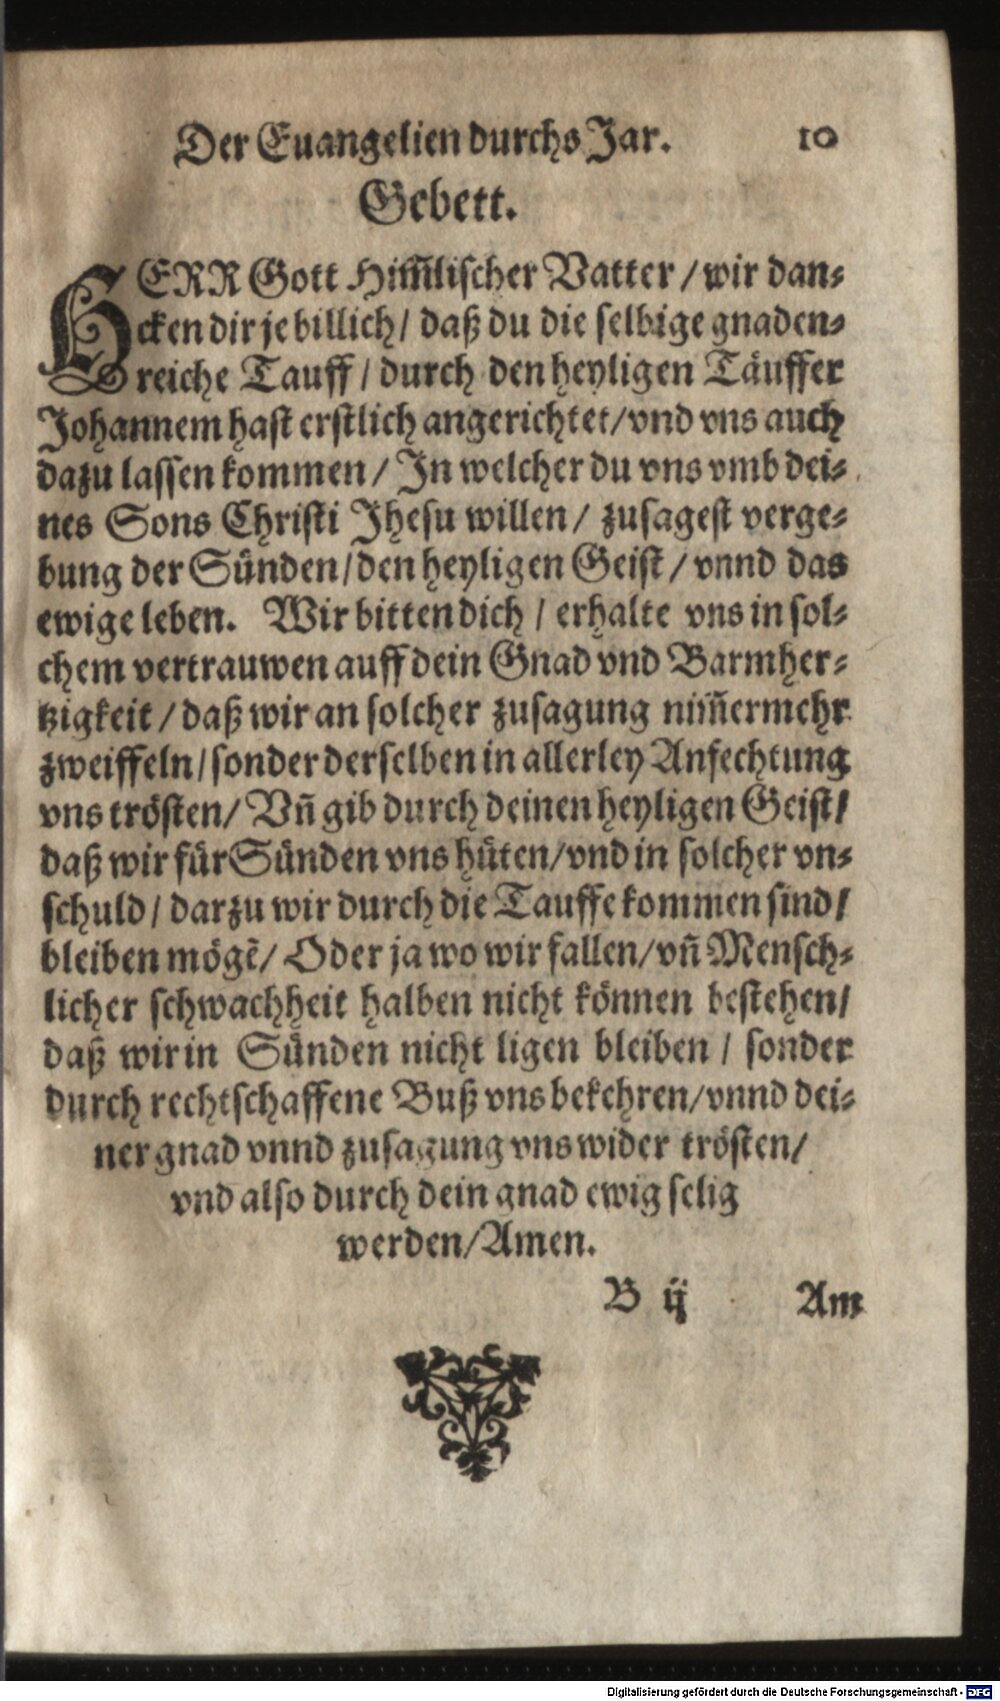 Der Euangelien durchs Jar. 10
Gebett.
HERR Gott Him̃lischer Vatter / wir dan⸗
cken dir je billich / daß du die selbige gnaden⸗
reiche Tauff / durch den heyligen Täuffer
Johannem hast erstlich angerichtet / vnd vns auch
dazu lassen kommen / In welcher du vns vmb dei⸗
nes Sons Christi Jhesu willen / zusagest verge⸗
bung der Sünden / den heyligen Geist / vnnd das
ewige leben. Wir bitten dich / erhalte vns in sol⸗
chem vertrauwen auff dein Gnad vnd Barmher⸗
tzigkeit / daß wir an solcher zusagung nim̃ermehr
zweiffeln / sonder derselben in allerley Anfechtung
vns trösten / Vñ gib durch deinen heyligen Geist /
daß wir für Sünden vns hüten / vnd in solcher vn⸗
schuld / darzu wir durch die Tauffe kommen sind /
bleiben mögẽ / Oder ja wo wir fallen / vñ Mensch⸗
licher schwachheit halben nicht können bestehen /
daß wir in Sünden nicht ligen bleiben / sonder
durch rechtschaffene Buß vns bekehren / vnnd dei⸗
ner gnad vnnd zusagung vns wider trösten /
vnd also durch dein gnad ewig selig
werden / Amen.
B ij Am
Digitalisierung gefördert durch die Deutsche Forschungsgemeinschaft - DFG